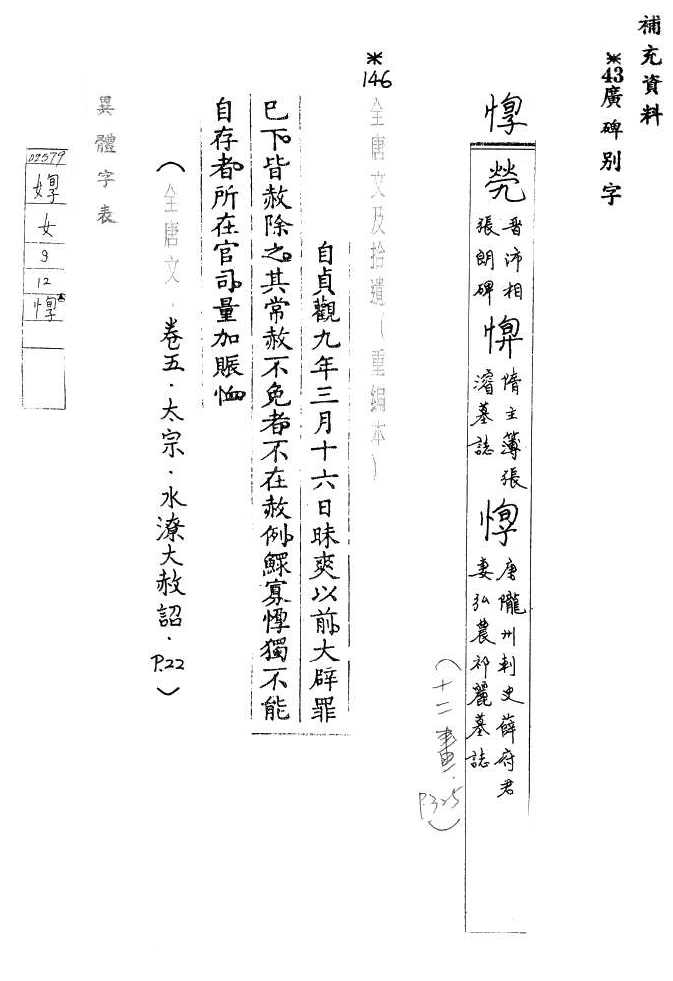 補充資料
*43廣碑別字
惸
煢 晉沛相
張朗碑
隋主簿張
濬墓誌
惸 唐隴州刺史薛府君
妻弘農祁麗墓誌
(十二畫.
P.325)
*146
全唐文及拾遺(重編本)
自貞觀九年三月十六日昧爽以前。大辟罪
已下。皆赦除之。其常赦不免者。不在赦例。鰥寡惸獨不能
自存者。所在官司。量加賑恤。
(全唐文.卷五.太宗.水潦大赦詔.P.22)
異體字表
02579
女
9
12
惸